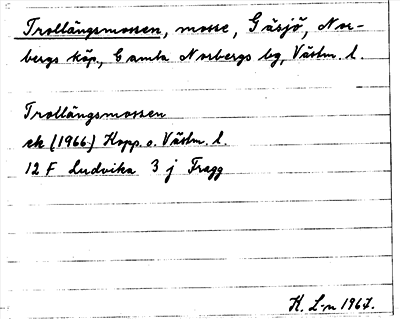 Trollängsmossen, mosse, Gäsjö, Nor-
bergs köp., Gamla Norbergs bg, Västm. l.
Trollängsmossen
ek (1966) Kopp. o. Västm. l.
12 F Ludvika 3 j Fragg
K. L-n 1967.